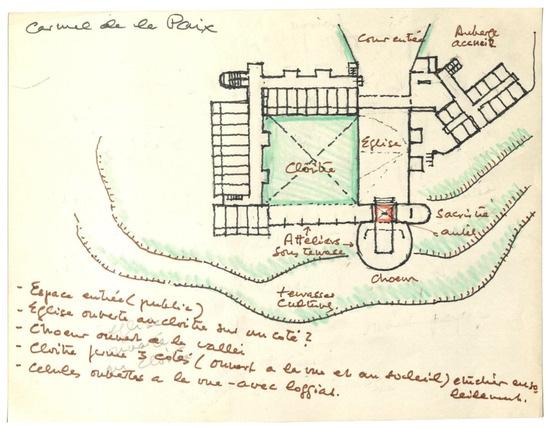 Carmel de la Paix
Cour entrée
Auberge
accueil
Eglise
Cloître
Sacristie
autel
Atteliers
sous terrasse
Choeur
terrasses
Culture
- Espace entrée (public)
- Eglise ouverte au cloitre sur un coté ?
- Choeur ouvert a la vallei
- Cloitre fermé 3 cotés (ouvert a la vue et au soleuil) etudier enso-
leillement.
- Celules ouvertes a la vue - avec loggias.